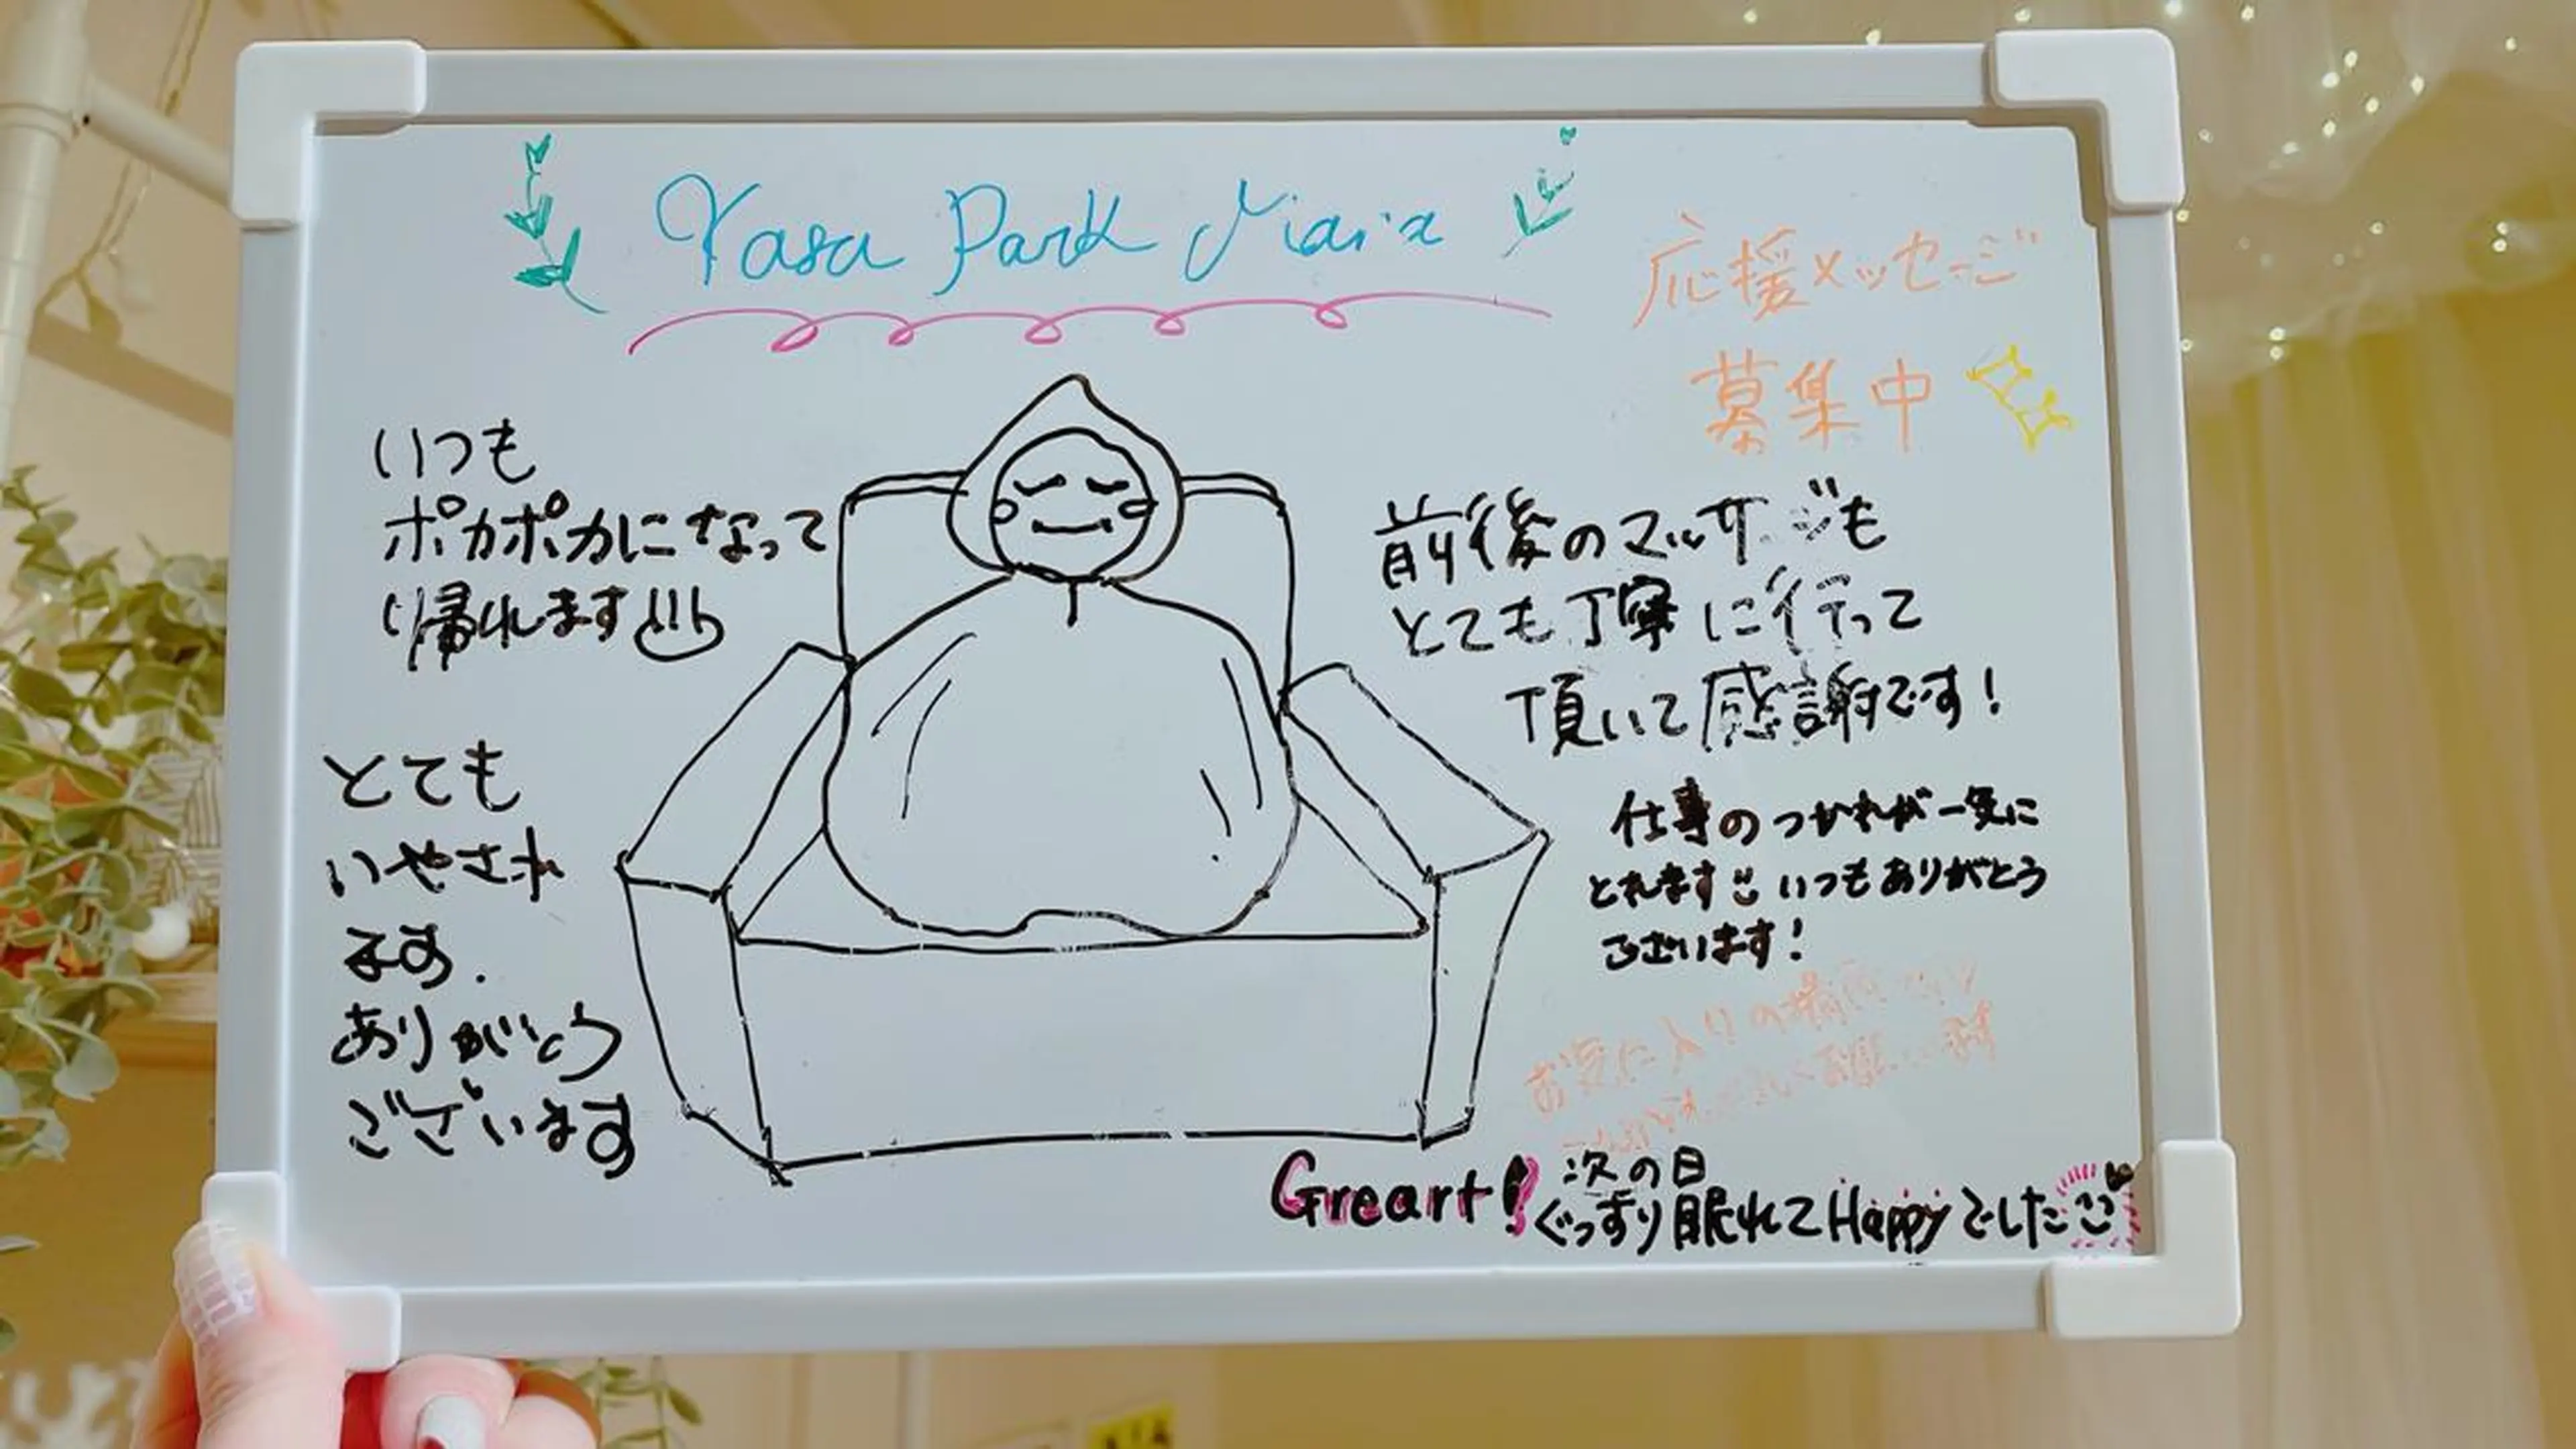 Yasa Park
応援メッセージ
募集中
いつも
ポカポカになって
帰れます
とても
いやされ
ます.
ありがとう
ございます
前後のマッサージも
とても丁寧に行って
頂いて感謝です!
仕事のつかれが一気に
とれます いつもありがとう
ございます!
お気に入りの場所
Greart!
次の日
ぐっすり眠れてHappyでした